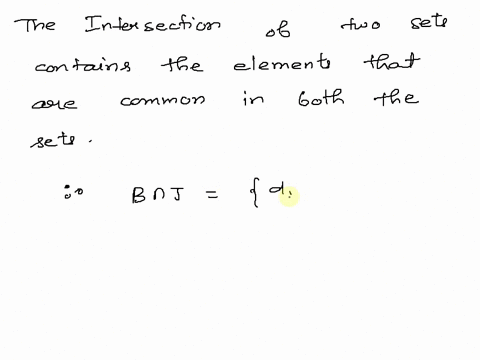 The Intersection of two sets
contains the elements that
are common in both the
sets.
∴ B∩J = { d,